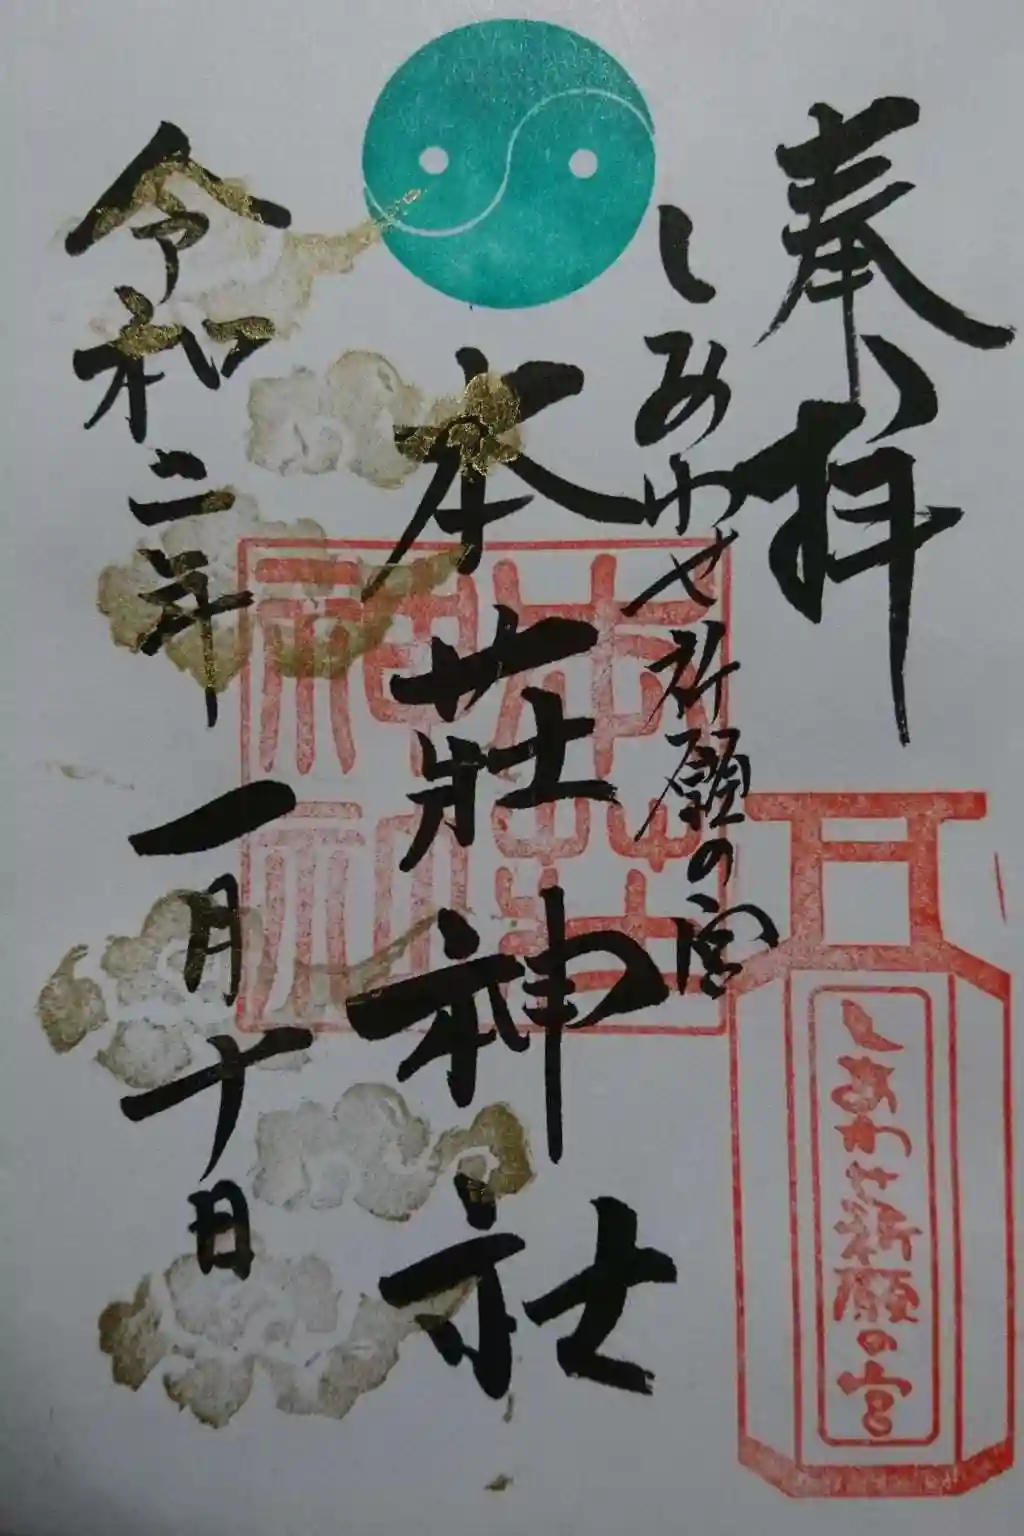 奉拝
しあわせ祈願の宮
しあわせ祈願の宮
本荘神社
本荘
神社
令和二年一月十日